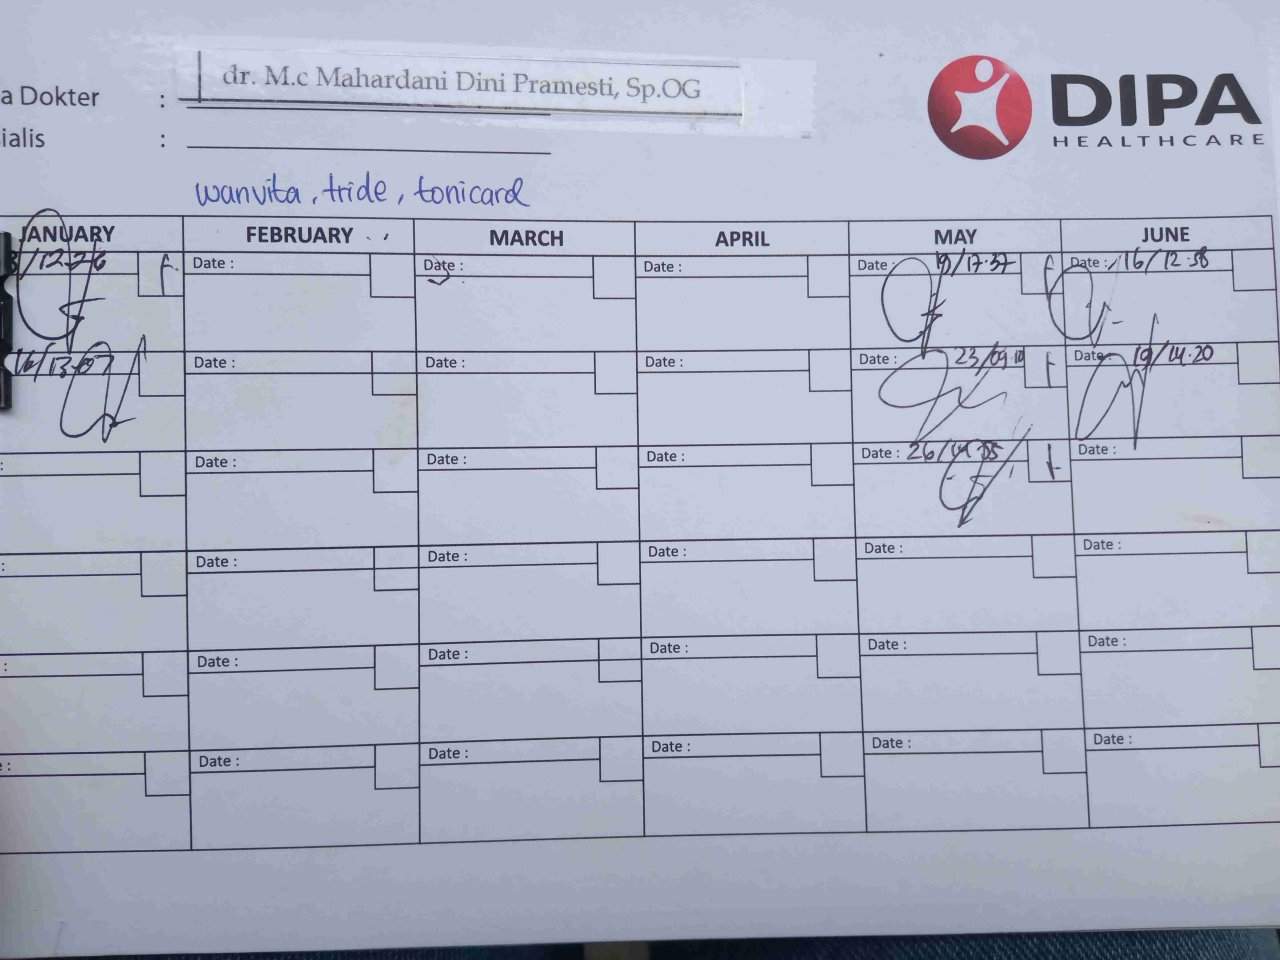 dr. M.c Mahardani Dini Pramesti, Sp.OG
a Dokter :
ialis :
DIPA
HEALTHCARE
wanvita, tride, tonicard
JANUARY FEBRUARY MARCH APRIL MAY JUNE
/12.26 f. Date : Date : Date : Date : 19/17.37 f Date : 16/12.58
16/13.07 Date : Date : Date : Date : 23/09.10 f Date : 19/14.20
: Date : Date : Date : Date : 26/14.55 f Date :
: Date : Date : Date : Date : Date :
: Date : Date : Date : Date : Date :
: Date : Date : Date : Date : Date :